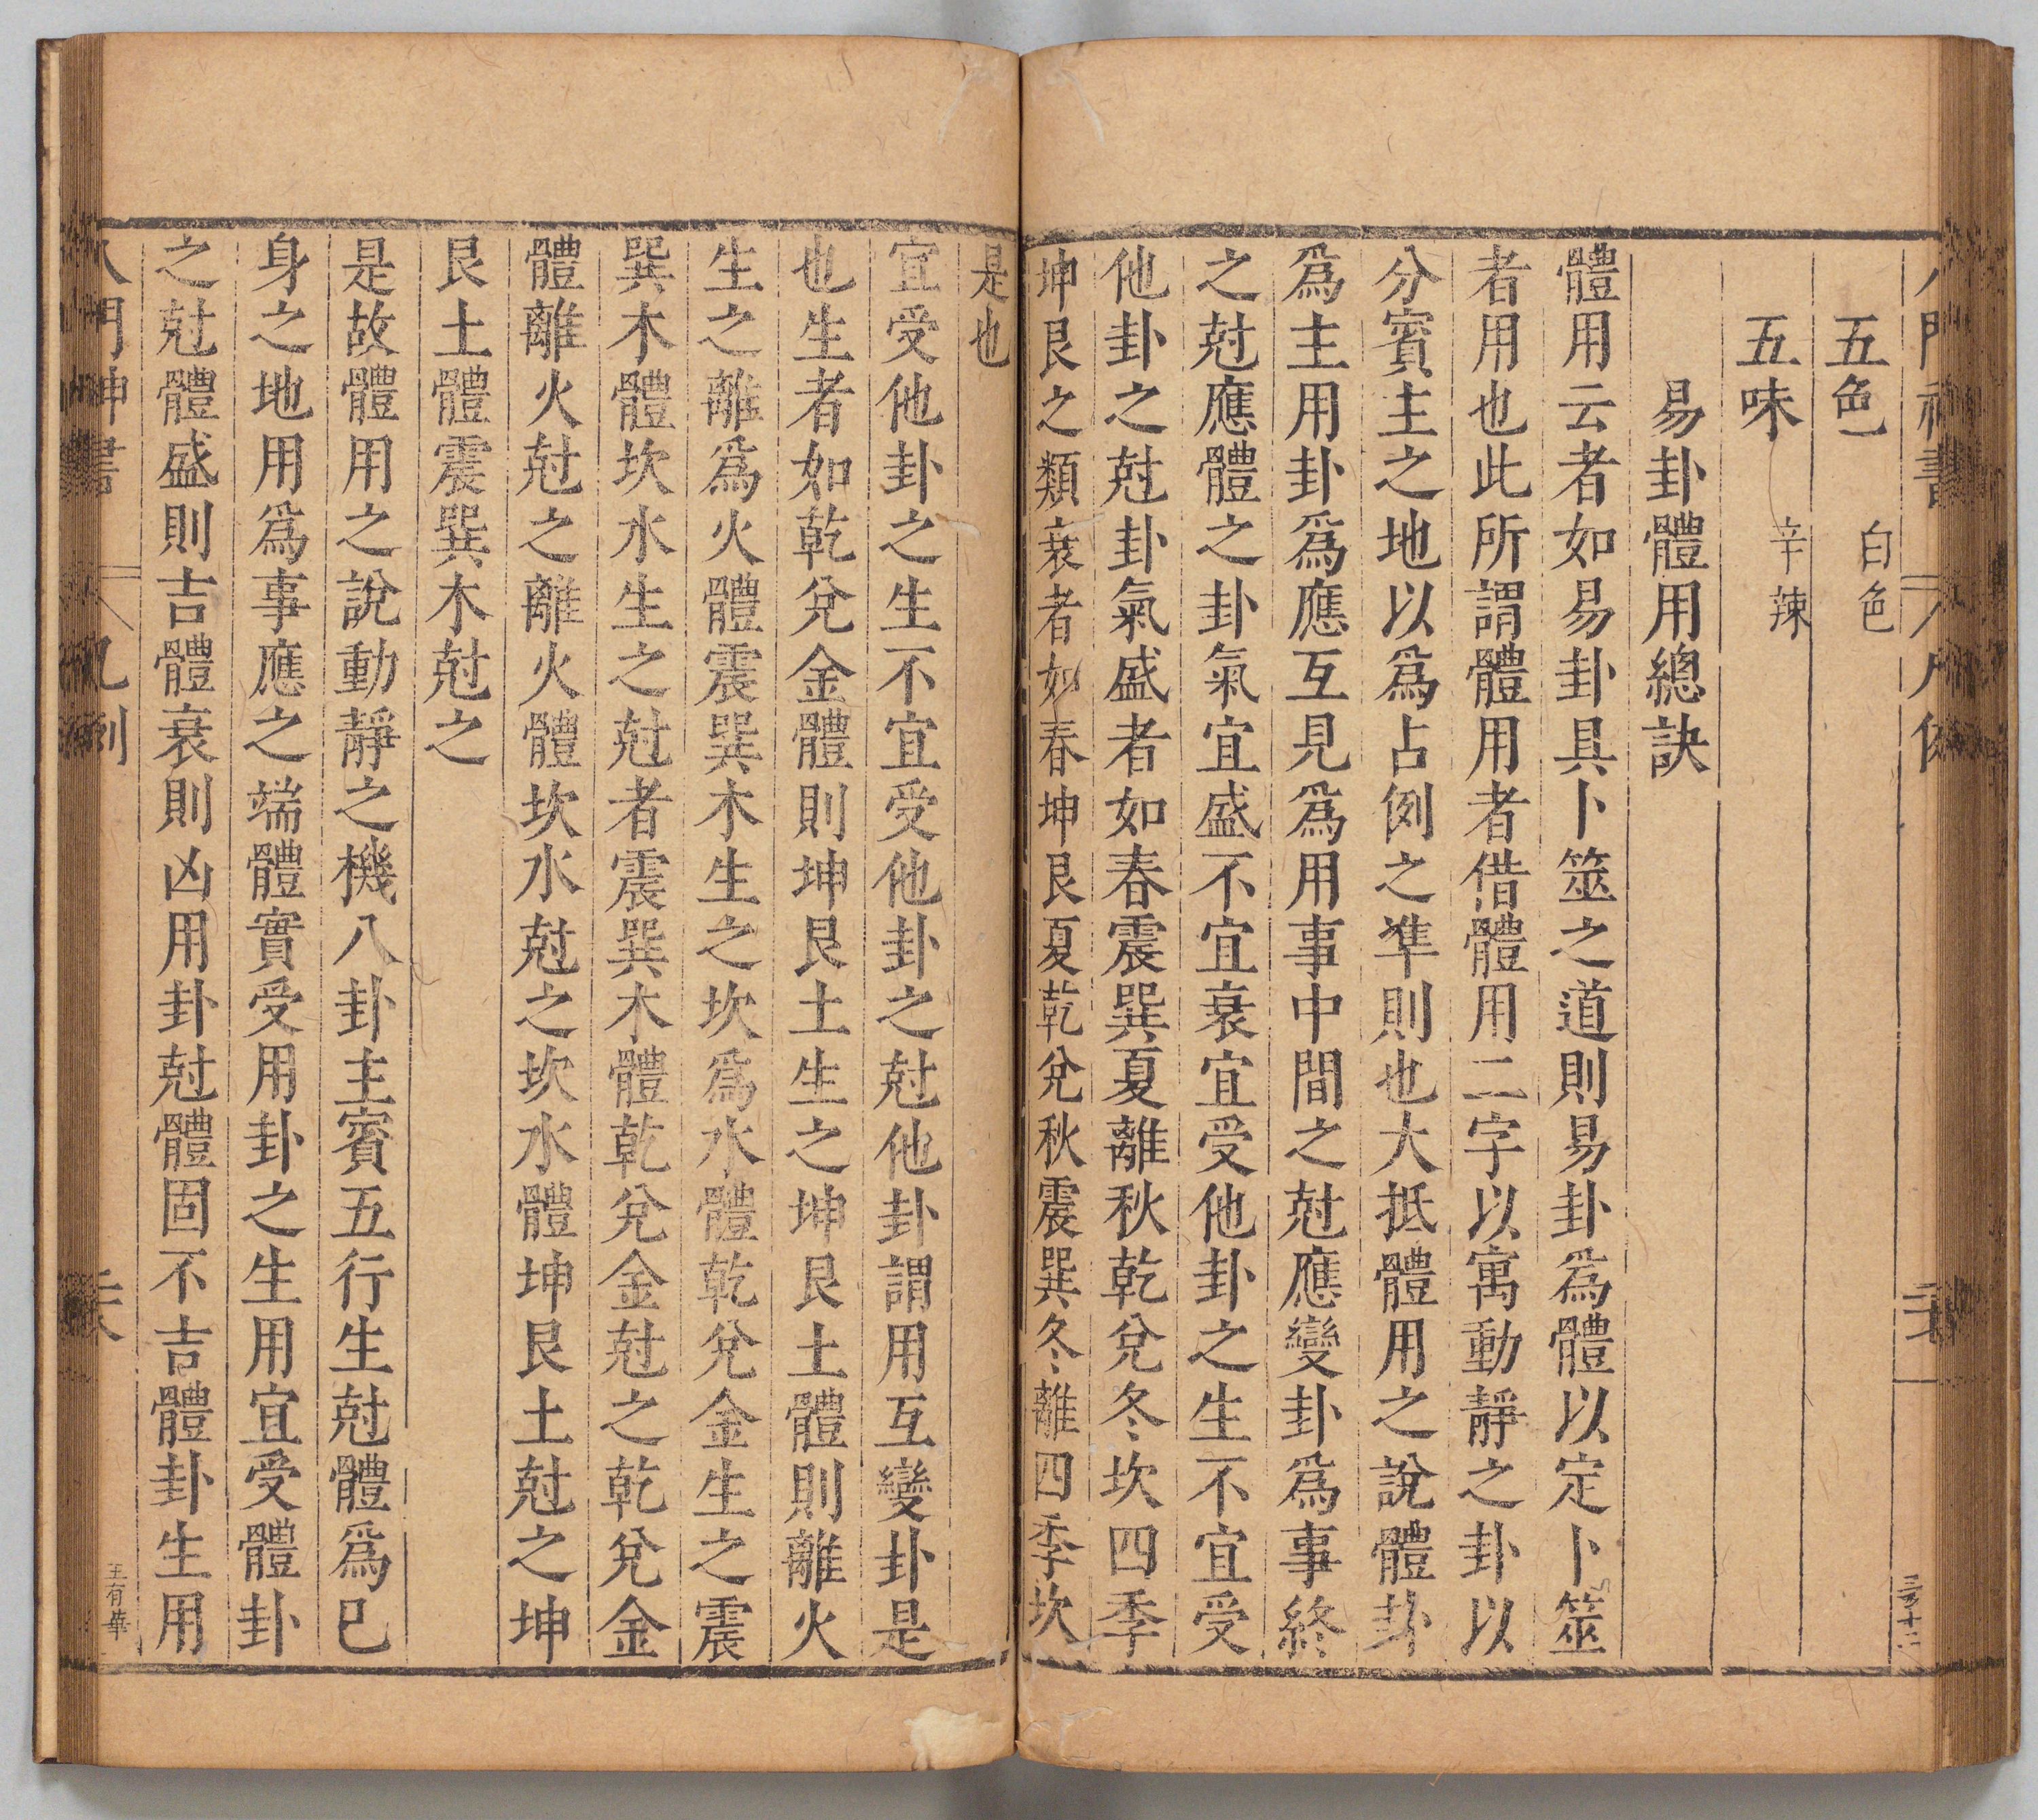 五色 白色
五味 辛辣
易卦體用總訣
體用云者如易卦具卜筮之道則易卦爲體以定卜筮
者用也此所謂體用者借體用二字以寓動靜之卦以
分賓主之地以爲占例之準則也大抵體用之說體卦
爲主用卦爲應互見爲用事中間之尅應變卦爲事終
之尅應體之卦氣宜盛不宜衰宜受他卦之生不宜受
他卦之尅卦氣盛者如春震巽夏離秋乾兌冬坎四季
坤艮之類衰者如春坤艮夏乾兌秋震巽冬離四季坎
是也
宜受他卦之生不宜受他卦之尅他卦謂用互變卦是
也生者如乾兌金體則坤艮土生之坤艮土體則離火
生之離爲火體震巽木生之坎爲水體乾兌金生之震
巽木體坎水生之尅者震巽木體乾兌金尅之乾兌金
體離火尅之離火體坎水尅之坎水體坤艮土尅之坤
艮土體震巽木尅之
是故體用之說動靜之機八卦主賓五行生尅體爲已
身之地用爲事應之端體實受用卦之生用宜受體卦
之尅體盛則吉體衰則凶用卦尅體固不吉體卦生用
八門神書 凡例
王有華